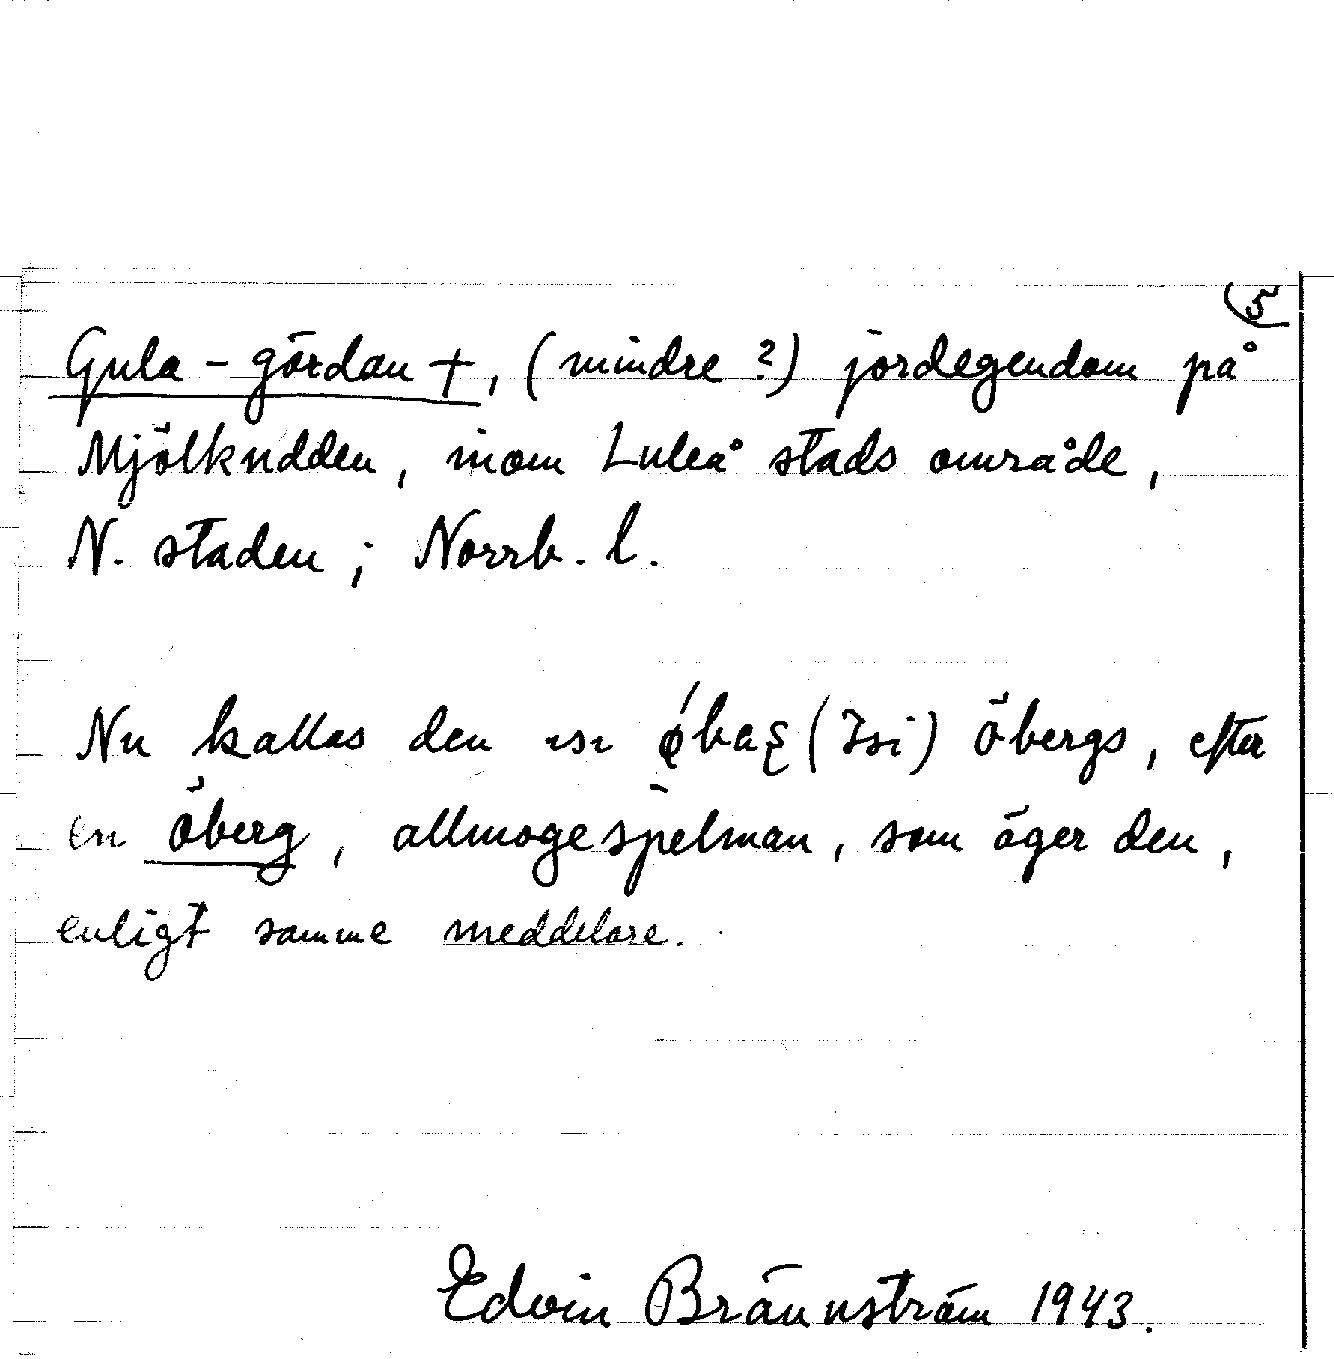 5
Gula-gördan +, (mindre?) jordegendom på
Mjölkudden, inom Luleå stads område,
N. staden; Norrb. l.
Nu kallas den øbaș (Isi) Öbergs, efter
en Öberg, allmogespelman, som äger den,
enligt samme meddelare.
Edvin Brännström 1943.